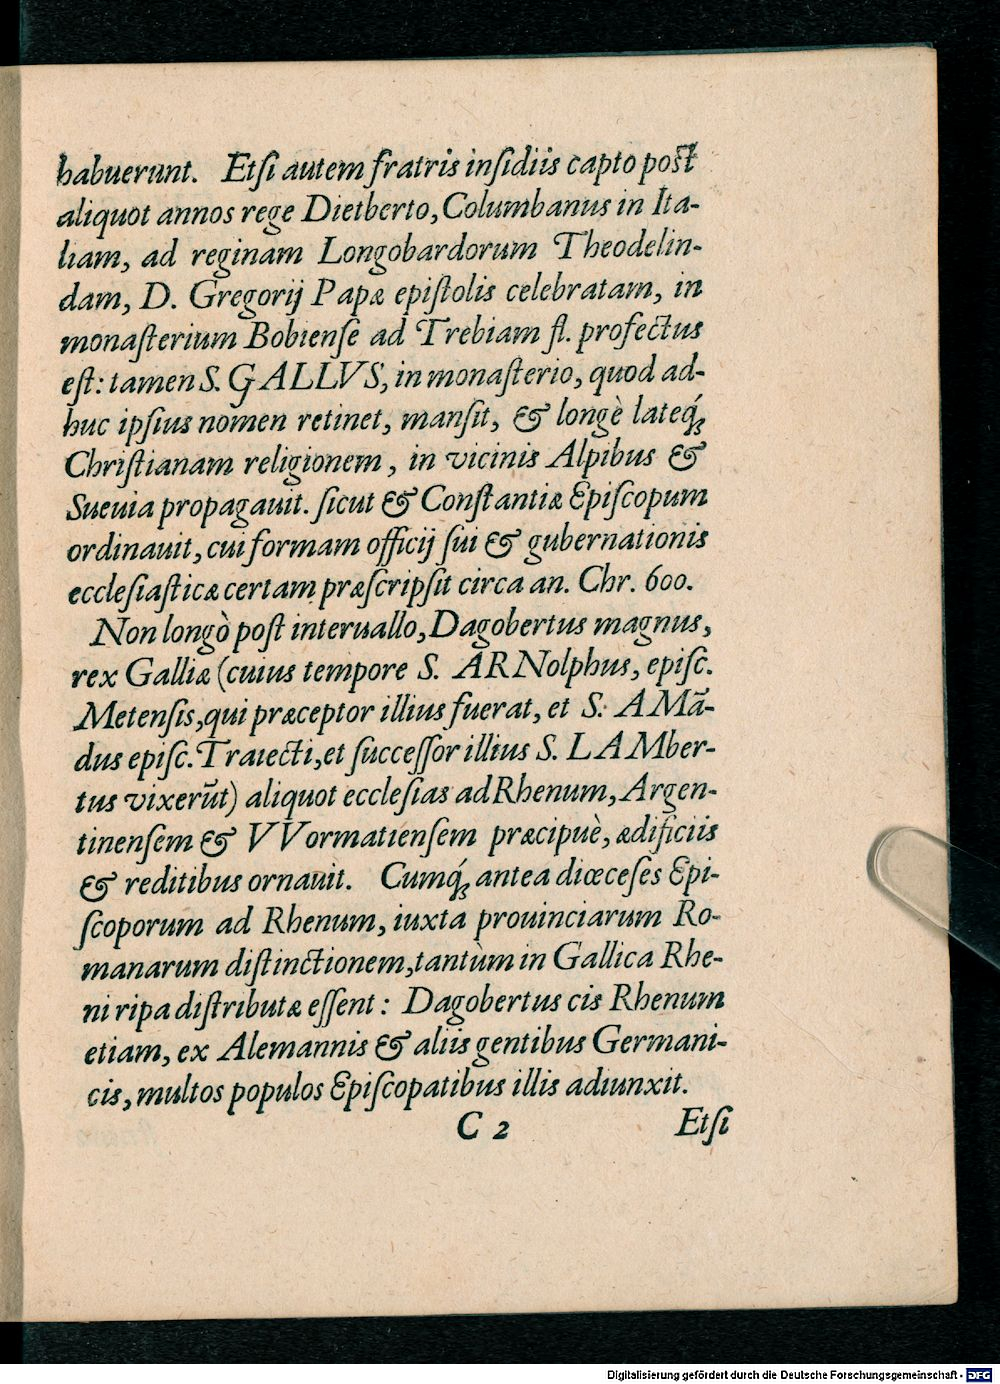 habuerunt. Etſi autem fratris inſidiis capto poſt
aliquot annos rege Dietberto, Columbanus in Ita-
liam, ad reginam Longobardorum Theodelin-
dam, D. Gregorij Papæ epiſtolis celebratam, in
monaſterium Bobienſe ad Trebiam fl. profectus
eſt: tamen S. GALLVS, in monaſterio, quod ad-
huc ipſius nomen retinet, manſit, & longè lateq́ꝫ
Chriſtianam religionem, in vicinis Alpibus &
Sueuia propagauit. ſicut & Conſtantiæ Epiſcopum
ordinauit, cui formam officij ſui & gubernationis
eccleſiaſticæ certam præſcripſit circa an. Chr. 600.
Non longò poſt interuallo, Dagobertus magnus,
rex Galliæ (cuius tempore S. ARNolphus, epiſc.
Metenſis, qui præceptor illius fuerat, et S. AMã-
dus epiſc. Traiecti, et ſucceſſor illius S. LAMber-
tus vixerũt) aliquot eccleſias ad Rhenum, Argen-
tinenſem & VVormatienſem præcipuè, ædificiis
& reditibus ornauit. Cumq́ꝫ antea diœceſes Epi-
ſcoporum ad Rhenum, iuxta prouinciarum Ro-
manarum diſtinctionem, tantùm in Gallica Rhe-
ni ripa diſtributæ eſſent: Dagobertus cis Rhenum
etiam, ex Alemannis & aliis gentibus Germani-
cis, multos populos Epiſcopatibus illis adiunxit.
C 2 Etſi
Digitalisierung gefördert durch die Deutsche Forschungsgemeinschaft - DFG